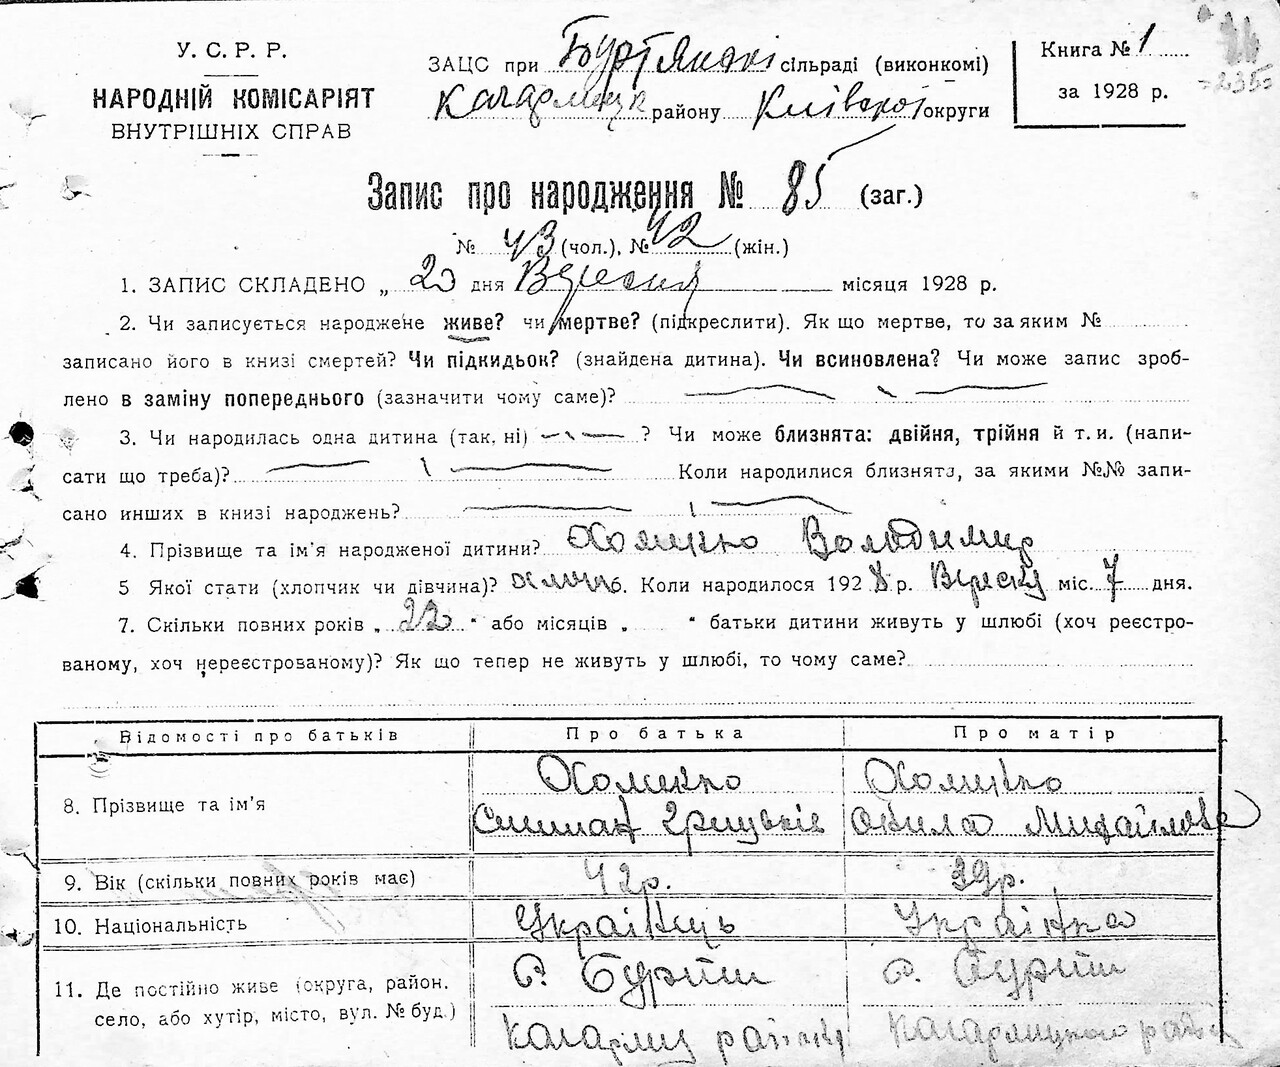 У. С. Р. Р.
НАРОДНІЙ КОМІСАРІЯТ
ВНУТРІШНІХ СПРАВ
ЗАЦС при Буртянскі сільраді (виконкомі)
Кагарлицк району Київскої округи
Книга № 1
за 1928 р.
Запис про народження № 85 (заг.)
№ 43 (чол.), № 42 (жін.)
1. ЗАПИС СКЛАДЕНО „ 20 дня Вересня місяця 1928 р.
2. Чи записується народжене живе? чи мертве? (підкреслити). Як що мертве, то за яким №
записано його в книзі смертей? Чи підкидьок? (знайдена дитина). Чи всиновлена? Чи може запис зроб-
лено в заміну попереднього (зазначити чому саме)?
3. Чи народилась одна дитина (так, ні) ? Чи може близнята: двійня, трійня й т. и. (напи-
сати що треба)? Коли народилися близнята, за якими №№ запи-
сано инших в книзі народжень?
4. Прізвище та ім'я народженої дитини? Хоменко Володимир
5 Якої стати (хлопчик чи дівчина)? 6. Коли народилося 1928 р. Вересня міс. 7 дня.
7. Скільки повних років „ 22 " або місяців „ " батьки дитини живуть у шлюбі (хоч реєстро-
ваному, хоч нереєстрованому)? Як що тепер не живуть у шлюбі, то чому саме?
Відомості про батьків Про батька Про матір
8. Прізвище та ім'я Хоменко Хоменко
Михайлова
9. Вік (скільки повних років має) 42р. 39р.
10. Національність Українць Українка
11. Де постійно живе (округа, район, с. Бурти с. Бурти
село, або хутір, місто, вул. № буд.) Кагарлиц району Кагарлицкого райо